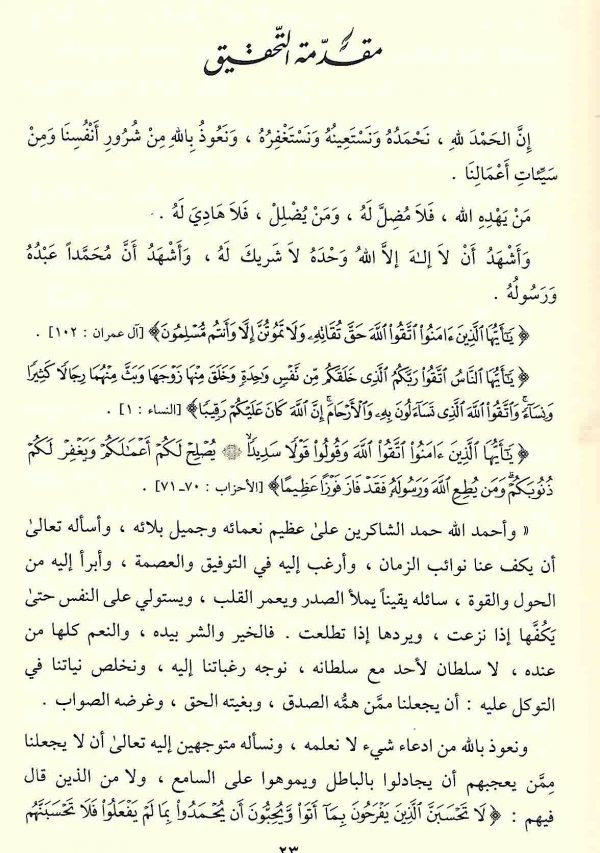 مقدّمة التّحقيق
إِنَّ الحَمْدَ للهِ ، نَحْمَدُهُ وَنَسْتَعِينُهُ وَنَسْتَغْفِرُهُ ، وَنَعُوذُ بِاللهِ مِنْ شُرُورِ أَنْفُسِنَا وَمِنْ
سَيِّئَاتِ أَعْمَالِنَا .
مَنْ يَهْدِهِ الله ، فَلاَ مُضِلَّ لَهُ ، وَمَنْ يُضْلِلْ ، فَلاَ هَادِيَ لَهُ .
وَأَشْهَدُ أَنْ لاَ إِلـٰهَ إلاَّ اللهُ وَحْدَهُ لاَ شَرِيكَ لَهُ ، وَأَشْهَدُ أَنَّ مُحَمَّداً عَبْدُهُ
وَرَسُولُهُ .
﴿ يَـٰٓأَيُّهَا ٱلَّذِينَ ءَامَنُوا۟ ٱتَّقُوا۟ ٱللَّهَ حَقَّ تُقَاتِهِۦ وَلَا تَمُوتُنَّ إِلَّا وَأَنتُم مُّسْلِمُونَ﴾ [آل عمران : ١٠٢] .
﴿ يَـٰٓأَيُّهَا ٱلنَّاسُ ٱتَّقُوا۟ رَبَّكُمُ ٱلَّذِى خَلَقَكُم مِّن نَّفْسٍ وَٰحِدَةٍ وَخَلَقَ مِنْهَا زَوْجَهَا وَبَثَّ مِنْهُمَا رِجَالًا كَثِيرًا
وَنِسَآءً ۚ وَٱتَّقُوا۟ ٱللَّهَ ٱلَّذِى تَسَآءَلُونَ بِهِۦ وَٱلْأَرْحَامَ ۚ إِنَّ ٱللَّهَ كَانَ عَلَيْكُمْ رَقِيبًا﴾ [النساء : ١] .
﴿ يَـٰٓأَيُّهَا ٱلَّذِينَ ءَامَنُوا۟ ٱتَّقُوا۟ ٱللَّهَ وَقُولُوا۟ قَوْلًا سَدِيدًا ۝ يُصْلِحْ لَكُمْ أَعْمَـٰلَكُمْ وَيَغْفِرْ لَكُمْ
ذُنُوبَكُمْ ۗ وَمَن يُطِعِ ٱللَّهَ وَرَسُولَهُۥ فَقَدْ فَازَ فَوْزًا عَظِيمًا﴾ [الأحزاب : ٧٠ـ٧١] .
« وأحمد الله حمد الشاكرين علىٰ عظيم نعمائه وجميل بلائه ، وأسأله تعالىٰ
أن يكف عنا نوائب الزمان ، وأرغب إليه في التوفيق والعصمة ، وأبرأ إليه من
الحول والقوة ، سائله يقيناً يملأ الصدر ويعمر القلب ، ويستولي على النفس حتىٰ
يَكُفَّها إذا نزعت ، ويردها إذا تطلعت . فالخير والشر بيده ، والنعم كلها من
عنده ، لا سلطان لأحد مع سلطانه ، نوجه رغباتنا إليه ، ونخلص نياتنا في
التوكل عليه : أن يجعلنا ممَّن همُّه الصدق ، وبغيته الحق ، وغرضه الصواب .
ونعوذ بالله من ادعاء شيء لا نعلمه ، ونسأله متوجهين إليه تعالىٰ أن لا يجعلنا
مِمَّن يعجبهم أن يجادلوا بالباطل ويموهوا على السامع ، ولا من الذين قال
فيهم : ﴿ لَا تَحْسَبَنَّ ٱلَّذِينَ يَفْرَحُونَ بِمَآ أَتَوا۟ وَّيُحِبُّونَ أَن يُحْمَدُوا۟ بِمَا لَمْ يَفْعَلُوا۟ فَلَا تَحْسَبَنَّهُم
٢٣